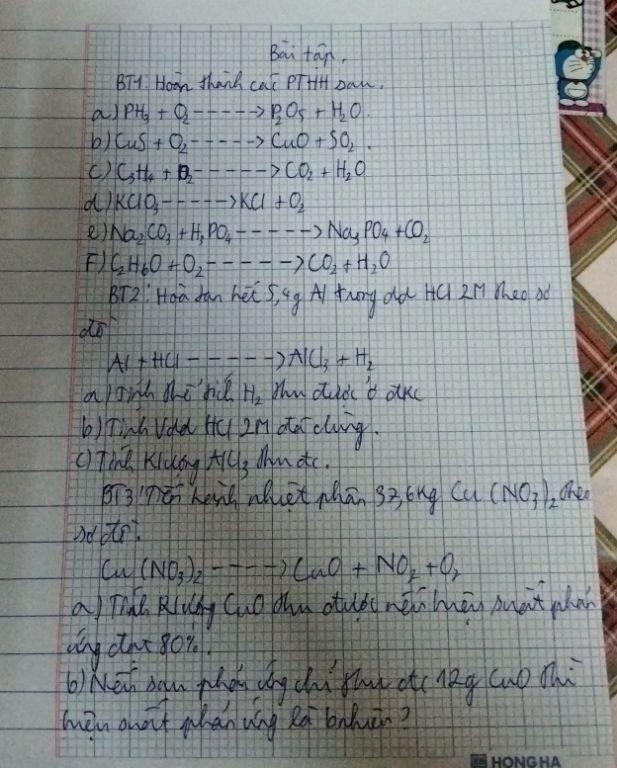 Bài tập.
BT1: Hoàn thành các PTHH sau.
a) PH₃ + O₂ -----> P₂O₅ + H₂O.
b) CuS + O₂ -----> CuO + SO₂.
c) C₃H₄ + O₂ -----> CO₂ + H₂O
d) KClO₃ -----> KCl + O₂
e) Na₂CO₃ + H₃PO₄ -----> Na₃PO₄ + CO₂
f) C₂H₆O + O₂ -----> CO₂ + H₂O
BT2: Hoà tan hết 5,4g Al trong dd HCl 2M theo sơ
đồ
Al + HCl -----> AlCl₃ + H₂
a) Tính thể tích H₂ thu được ở đkc
b) Tính Vdd HCl 2M đã dùng.
c) Tính K/lượng AlCl₃ thu đc.
BT3: Tiến hành nhiệt phân 37,6kg Cu(NO₃)₂ theo
sơ đồ.
Cu(NO₃)₂ ----> CuO + NO₂ + O₂
a) Tính K/lượng CuO thu được nếu hiệu suất phản
ứng đạt 80%.
b) Nếu sau phản ứng chỉ thu đc 12g CuO thì
hiệu suất phản ứng là bnhiên?
HONG HA